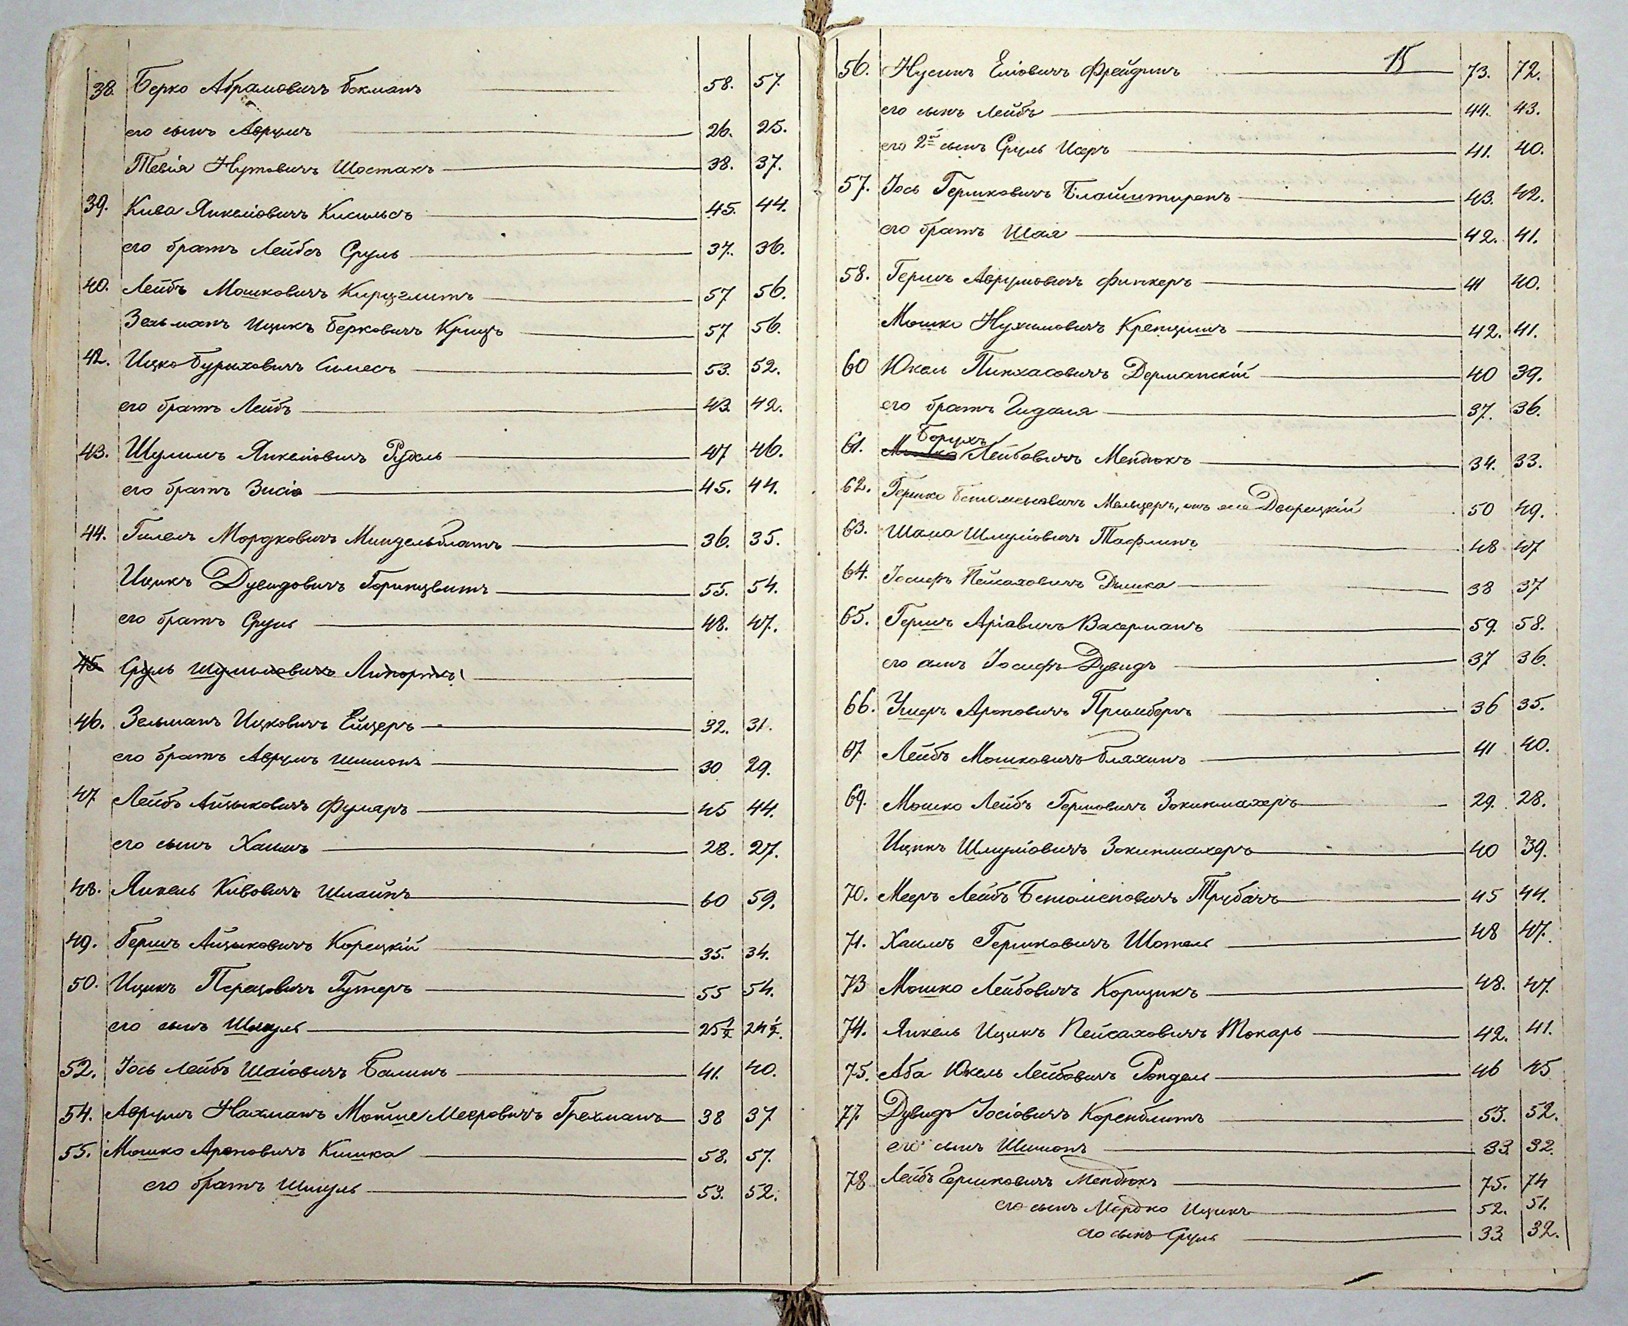 38. Берко Абрамовичъ Бокманъ 58. 57.
его сынъ Аврумъ 26. 25.
Тевія Нутовичъ Шостакъ 38. 37.
39. Кива Янкеліовичъ 45. 44.
его братъ Лейбъ Сруль 37. 36.
40. Лейбъ Мошковичъ Кирцглитъ 57 56.
Зельманъ Ицикъ Берковичъ Крицъ 57 56.
42. Ицко Бурихovичъ 53. 52.
его братъ Лейбъ 43 42.
43. Шулимъ Янкеліовичъ Рудель 47 46.
его братъ Зися 45. 44.
44. Гилель Мордковичъ Миндельблатъ 36. 35.
Ицикъ Дувидовичъ Горинцвитъ 55. 54.
его братъ Сруль 48. 47.
45. Сруль Шулимовичъ
46. Зельманъ Ицковичъ Ейцеръ 32. 31.
его братъ Аврумъ Шимонъ 30 29.
47 Лейбъ Айзыковичъ Фумаръ 45 44.
его сынъ Хаимъ 28. 27.
48. Янкель Кивовичъ Шпайнъ 60 59.
49. Гершъ Айзыковичъ Корецкій 35. 34.
50. Ицикъ Перецовичъ Гутеръ 55 54.
его сынъ Шмуль 25½ 24½.
52. Іось Лейбъ Шаіовичъ Балинъ 41. 40.
54. Аврумъ Нахманъ Мойше Мееровичъ Грехманъ 38 37
55. Мошко Ароновичъ Кишка 58. 57.
его братъ Шмуль 53. 52.
15
56. Нусинъ Еліовичъ Фрейдинъ 73. 72.
его сынъ Лейбъ 44. 43.
его 2й сынъ Сруль Исеръ 41. 40.
57. Іось Гершковичъ Блайштирепъ 43. 42.
его братъ Шая 42. 41.
58. Гершъ Аврумовичъ Финкеръ 41 40.
Мошко Нухимовичъ Крепцишъ 42. 41.
60 Юкель Пинхасовичъ Дерманскій 40 39.
его братъ Гидаля 37. 36.
61. Борухъ Лейбовичъ Мендюкъ 34. 33.
62. Гершко Беніоменовичъ Мельцеръ, онъ же Дворецкій 50 49.
63. Шама Шмуліовичъ Тафлинъ 48 47
64. Іосифъ Пейсаховичъ Дишка 38 37
65. Гершъ Аріавичъ Васерманъ 59. 58.
его сынъ Іосифъ Дувидъ 37 36.
66. Ушеръ Ароновичъ Примберъ 36 35.
67 Лейбъ Мошковичъ Бляхинъ 41 40.
69. Мошко Лейбъ Гершовичъ Зокинмахеръ 29. 28.
Ицикъ Шмуліовичъ Зокинмахеръ 40 39.
70. Мееръ Лейбъ Беніоміновичъ Трубачъ 45 44.
71. Хаимъ Гершковичъ Шотель 48 47.
73 Мошко Лейбовичъ Корщикъ 48. 47.
74. Янкель Ицикъ Пейсаховичъ Токарь 42. 41.
75. Аба Юкель Лейбовичъ Рондель 46 45
77 Дувидъ Іосіовичъ Коренблитъ 53. 52.
его сынъ Шимонъ 33. 32.
78 Лейбъ Гершковичъ Мендюкъ 75. 74
его сынъ Мордко Ицикъ 52. 51.
его сынъ Сруль 33 32.